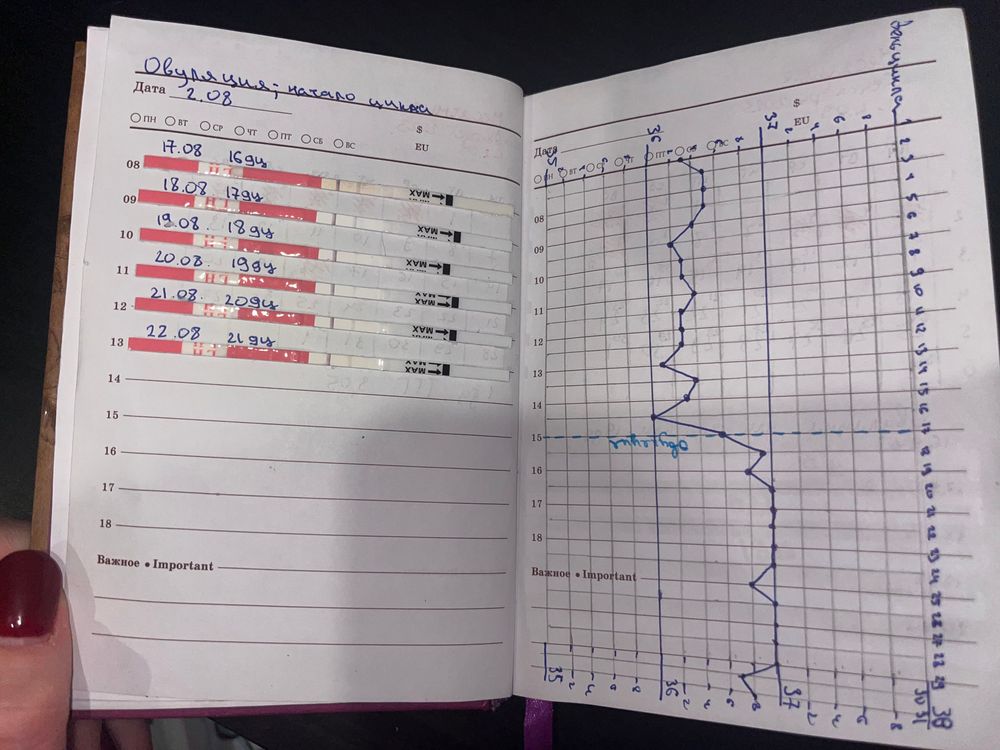 Овуляция; начало цикла
Дата 2.08
ПН ВТ СР ЧТ ПТ СБ ВС
$
EU
08
17.08 16дц
MAX
09
18.08 17дц
MAX
10
19.08 18дц
MAX
11
20.08 19дц
MAX
12
21.08. 20дц
MAX
13
22.08 21дц
MAX
14
15
16
17
18
Важное • Important
День цикла
$
EU
Дата
ПН ВТ ПТ ВС
35 36 37
2 4 6 8
1 2 3 4 5 6 7 8 9 10 11 12 13 14 15 16 17 18 19 20 21 22 23 24 25 26 27 28 29 30 31
08
09
10
11
12
13
14
15
Овуляция
16
17
18
Важное • Important
35 2 4 6 8 36 2 4 6 8 37 2 4 6 8 38